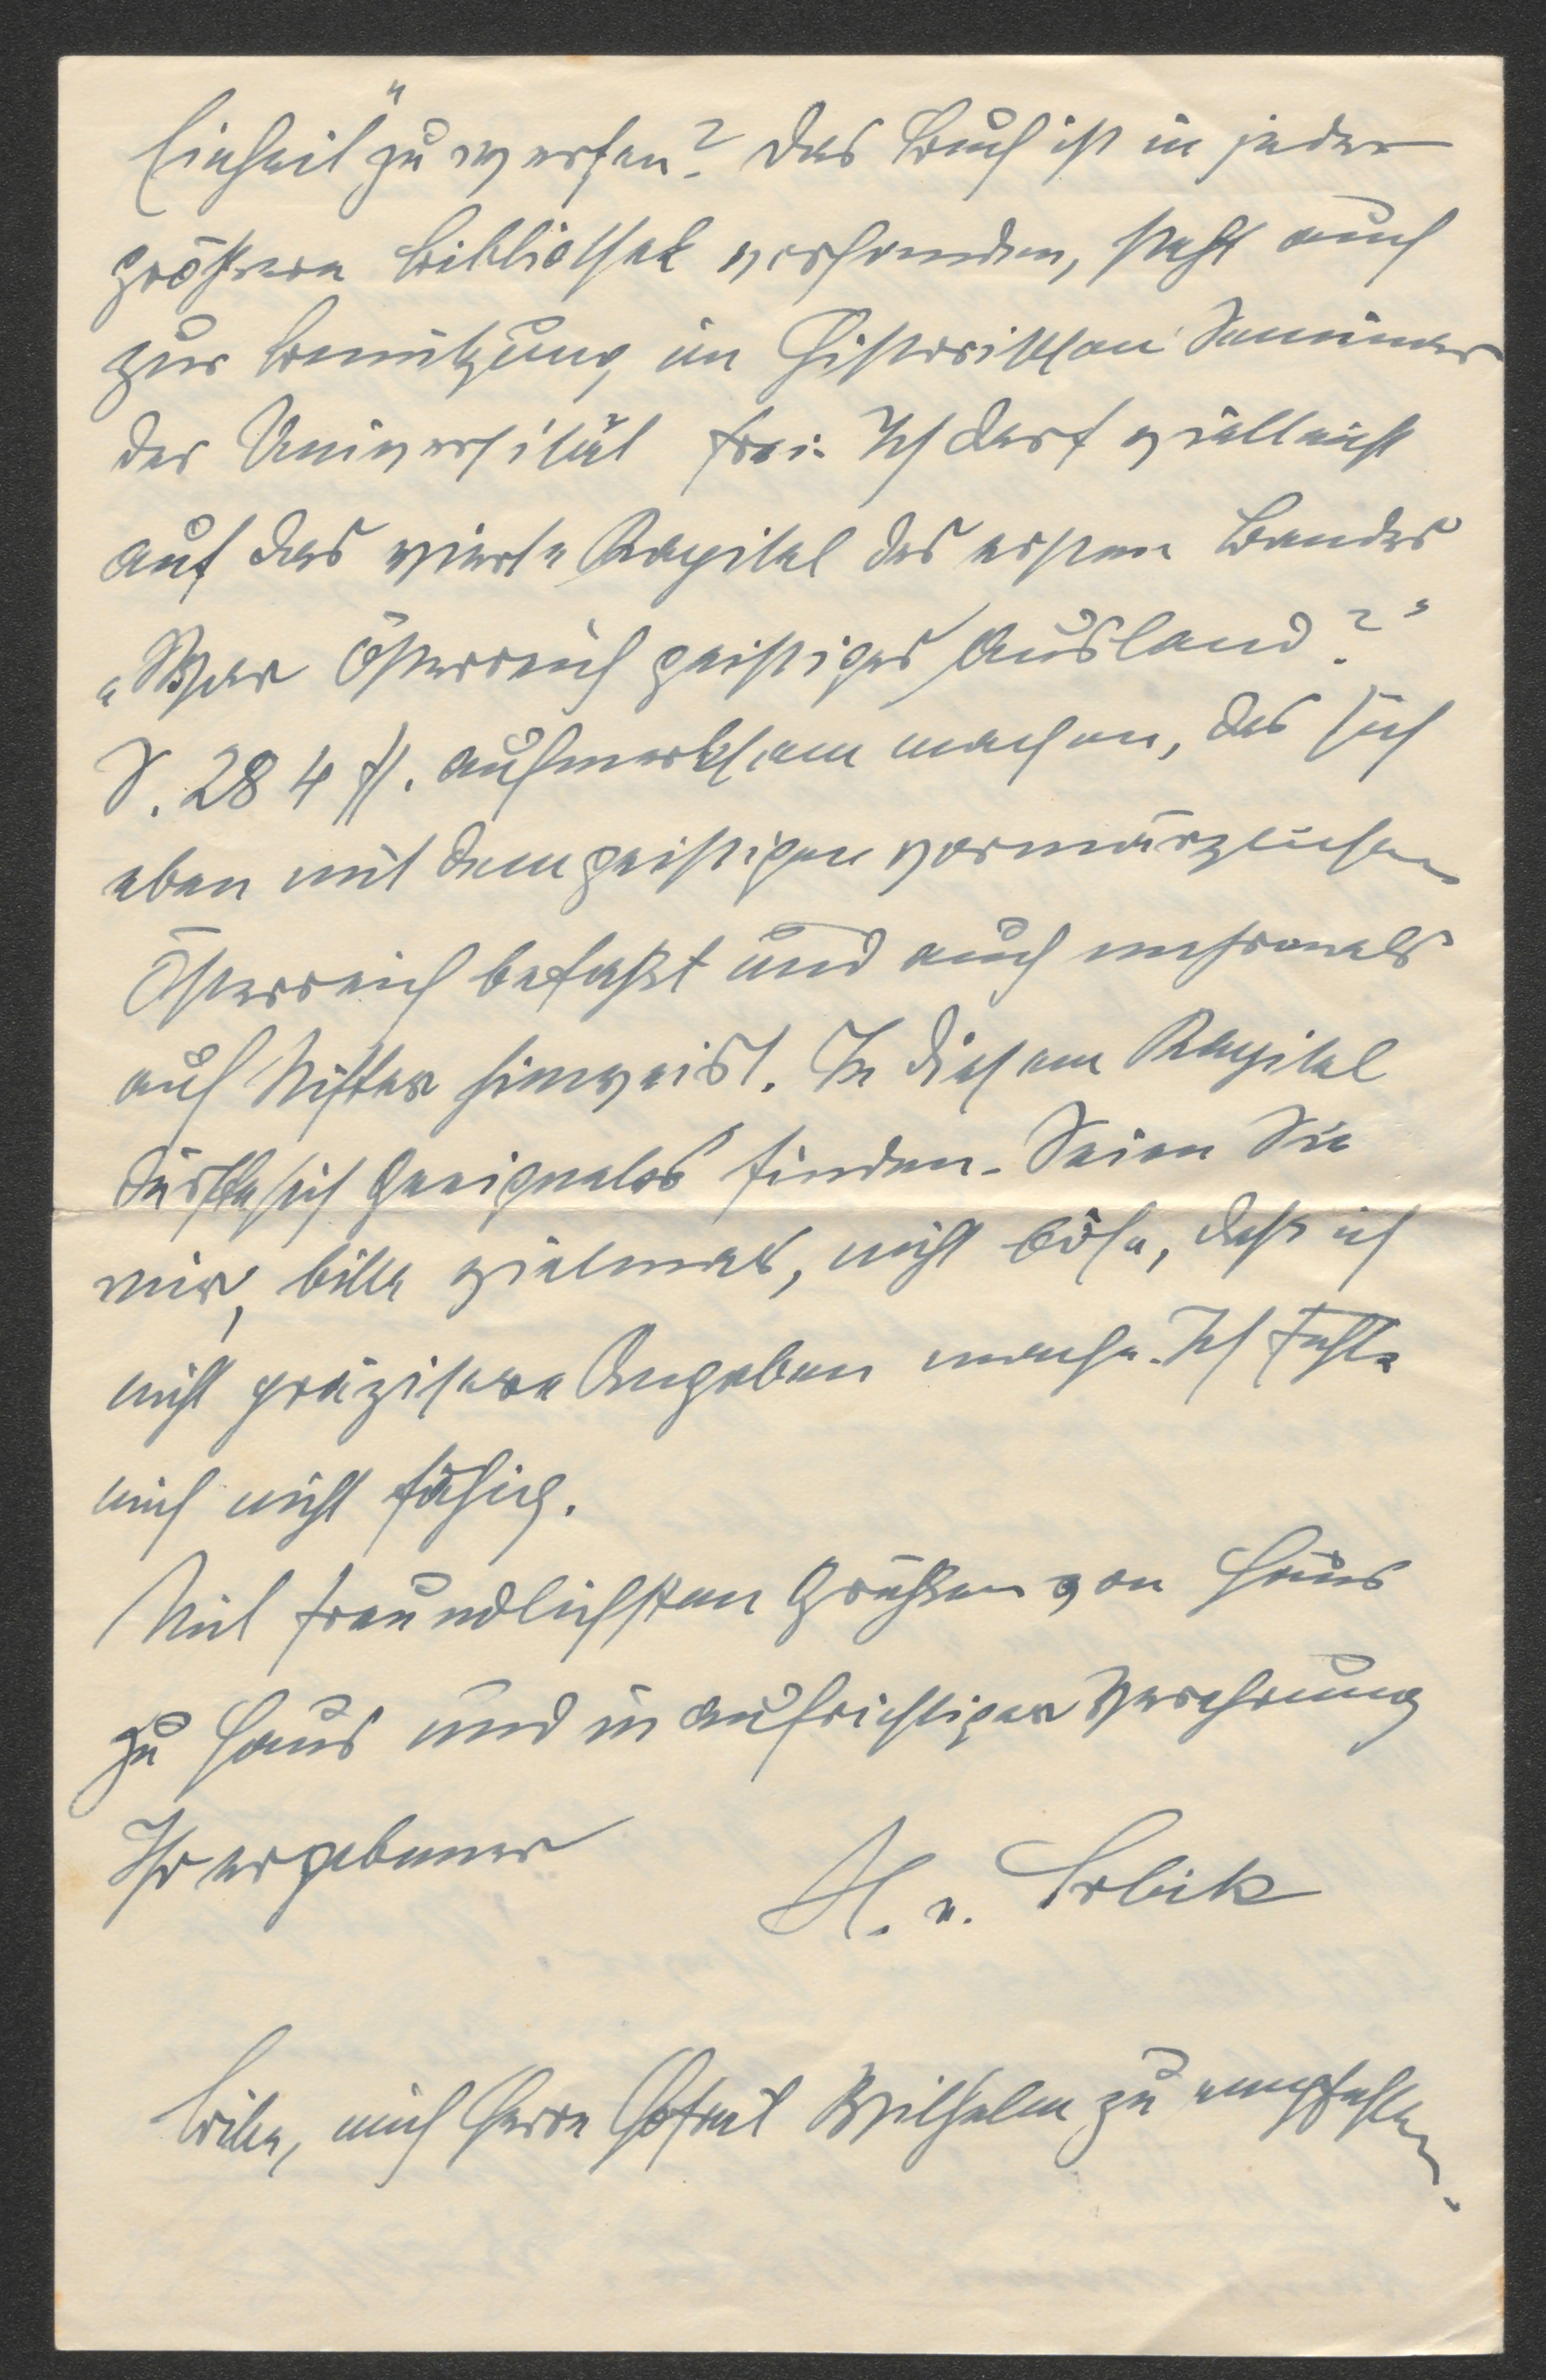 Einheit" zu werfen? Das Buch ist in jeder
größeren Bibliothek vorhanden, steht auch
zur Benützung im Historischen Seminar
der Universität frei. Ich darf vielleicht
auf das vierte Kapitel des ersten Bandes
„War Österreich geistiges Ausland?"
S. 284 ff. aufmerksam machen, das sich
eben mit dem geistigen vormärzlichen
Österreich befaßt und auch mehrmals
auf Stifter hinweist. In diesem Kapitel
dürfte sich Geeignetes finden. Seien Sie
mir, bitte vielmals, nicht böse, daß ich
nicht präzisere Angaben mache. Ich fühle
mich nicht fähig.
Mit freundlichsten Grüßen von Haus
zu Haus und in aufrichtiger Verehrung
Ihr ergebener
H. v. Srbik
Bitte, mich Herrn Hofrat Wilhelm zu empfehlen.